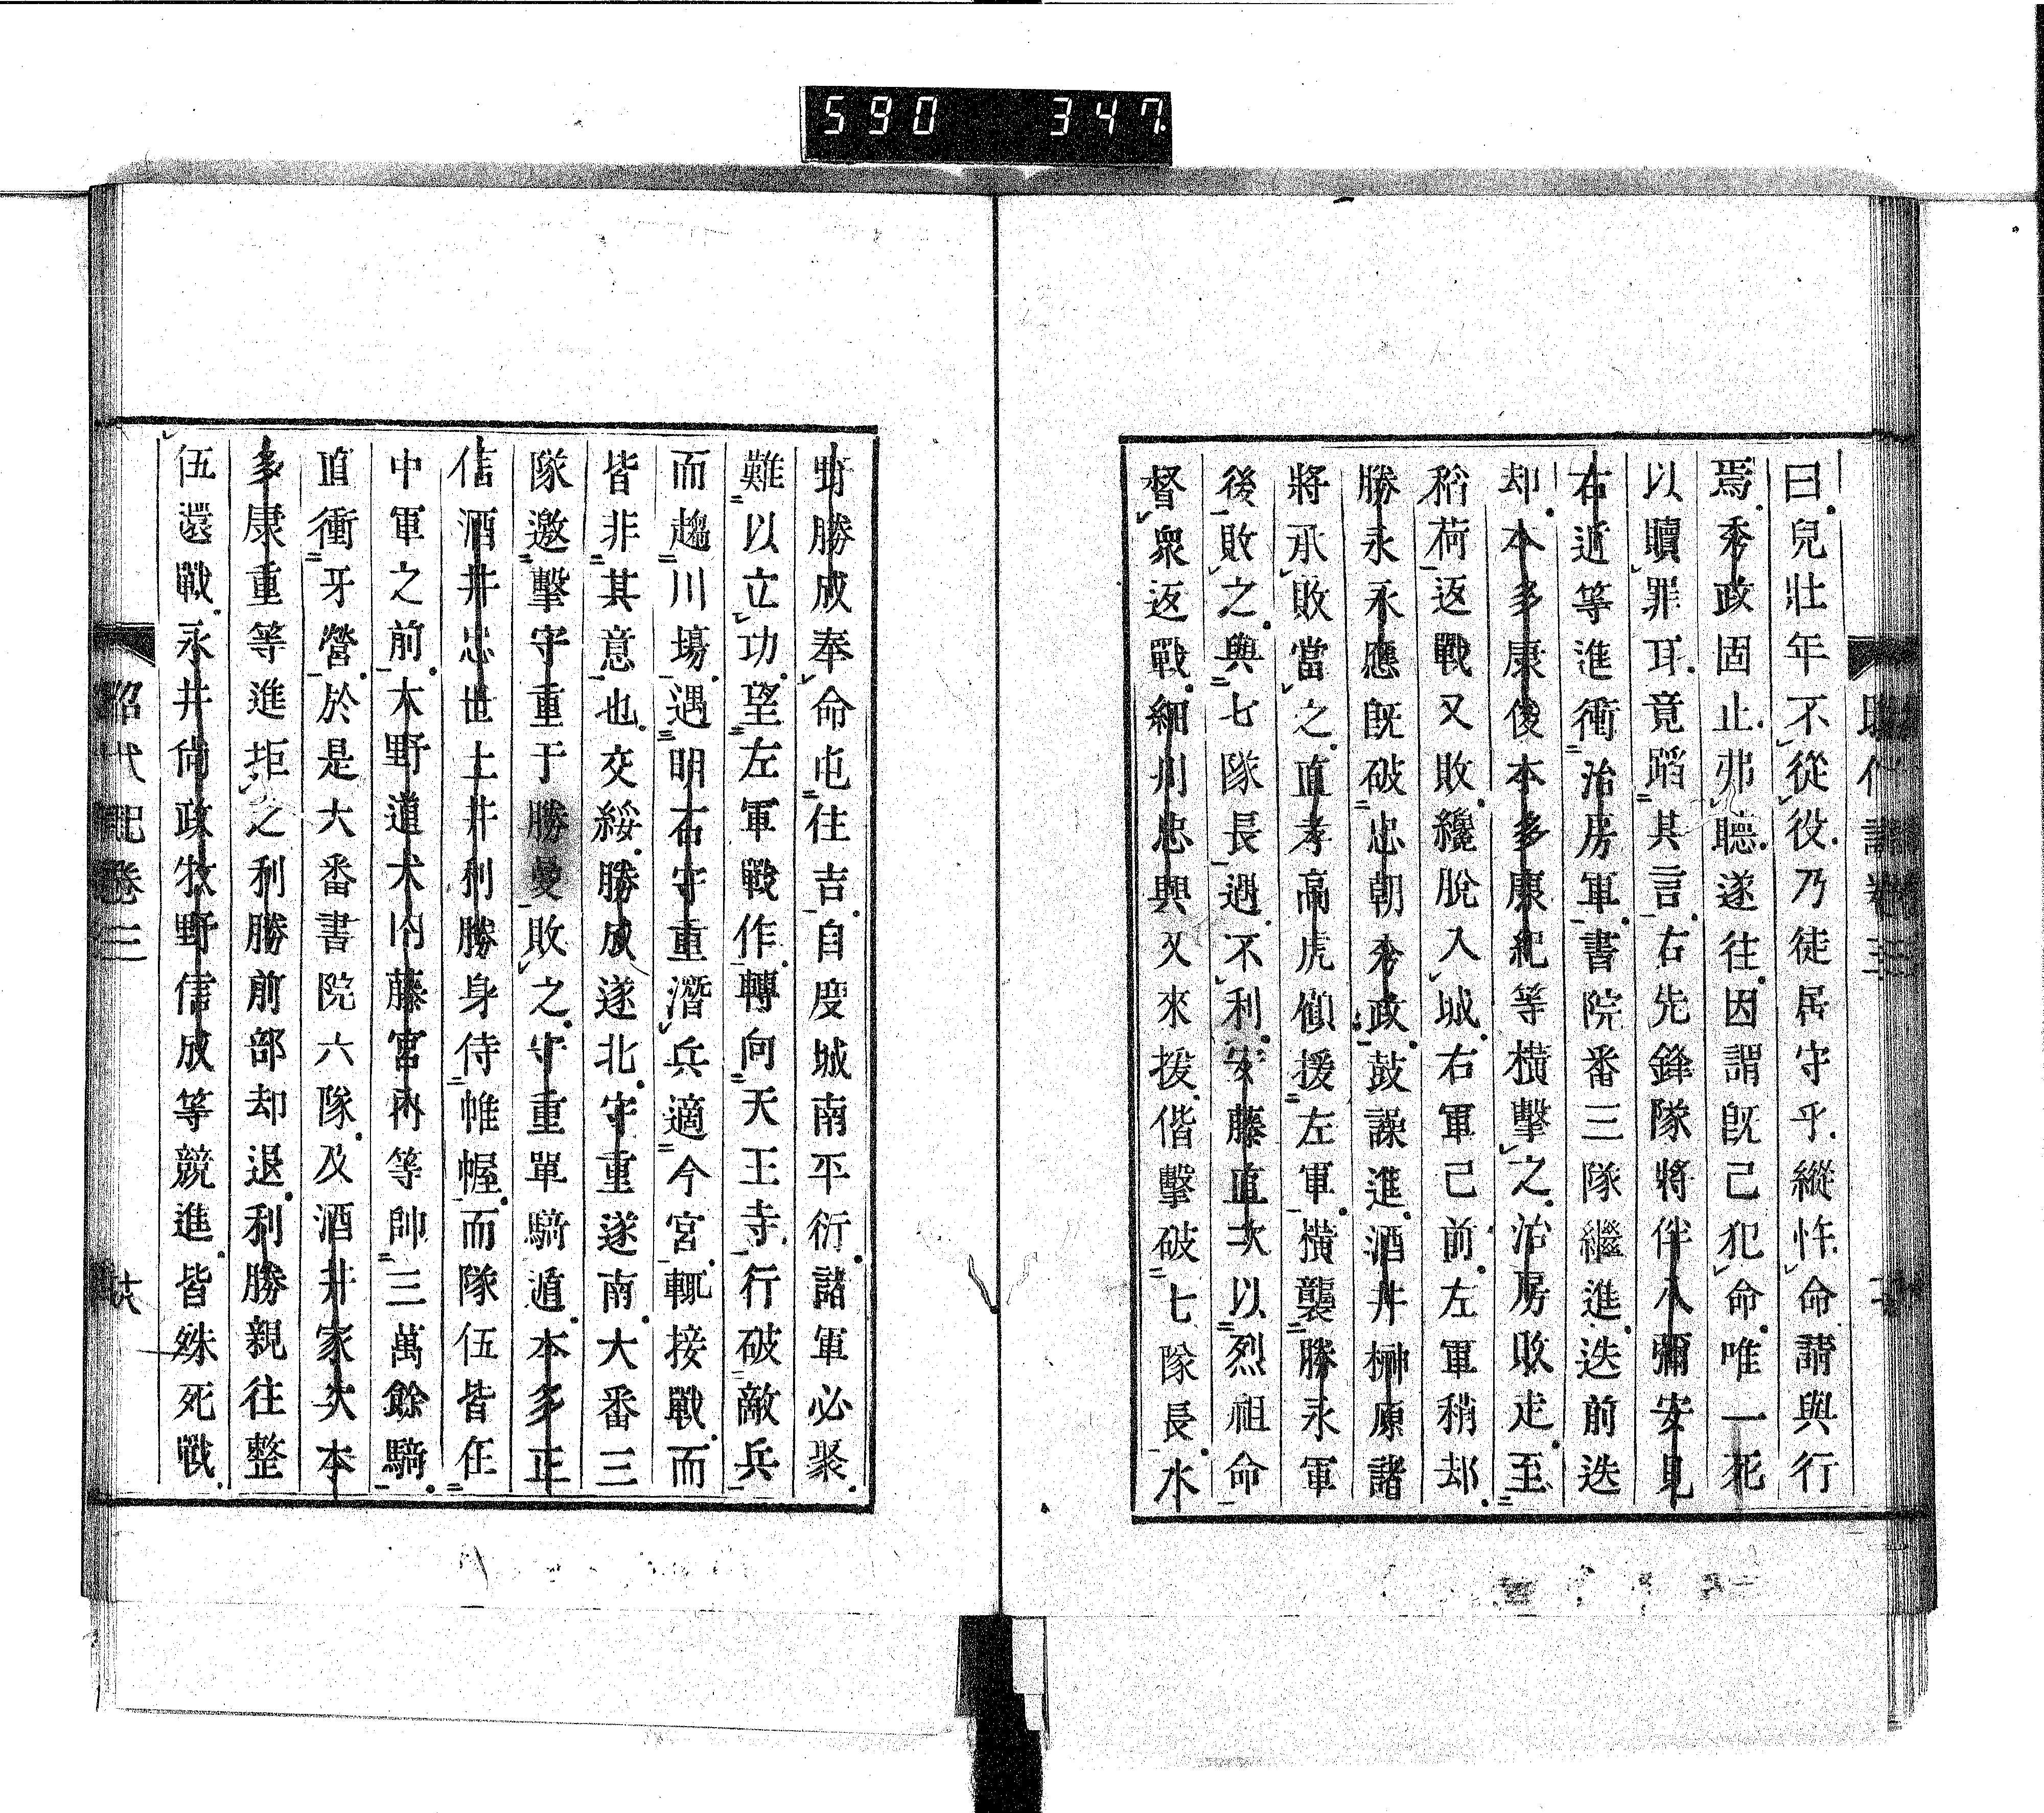 590 347
曰兒壯年不從役乃徒居守乎縱忤命請與行
焉秀政固止弗聽遂往因謂既己犯命唯一死
以贖罪耳竟蹈其言右先鋒隊將伴八彌安見
右近等進衝治房軍書院番三隊繼進迭前迭
却本多康俊本多康紀等橫擊之治房敗走至
稻荷返戰又敗纔脫入城右軍己前左軍稍却
勝永永應既破忠朝秀政鼓譟進酒井榊原諸
將承敗當之直孝高虎傾援左軍橫襲勝永軍
後敗之與七隊長遇不利安藤直次以烈祖命
督衆返戰細川忠興又來援偕擊破七隊長水
野勝成奉命屯住吉自度城南平衍諸軍必聚
難以立功望左軍戰作轉向天王寺行破敵兵
而趨川場遇明石守重潛兵適今宮輒接戰而
皆非其意也交綏勝成遂北守重遂南大番三
隊邀擊守重于勝曼敗之守重單騎遁本多正
信酒井忠世土井利勝身侍帷幄而隊伍皆在
中軍之前木野道犬伊藤宮內等帥三萬餘騎
直衝牙營於是大番書院六隊及酒井家次本
多康重等進拒之利勝前部却退利勝親往整
伍還戰永井尚政牧野信成等競進皆殊死戰
昭代記卷三